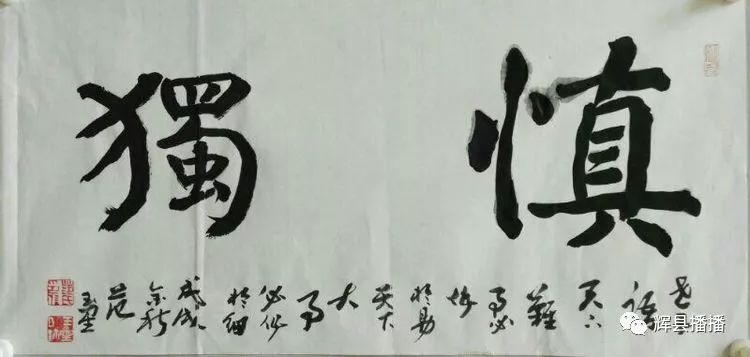 慎獨
老子
語
天下
難
事必
作
於易
天下
大
事
必作
於細
戊戌
金秋
范
辉县播播